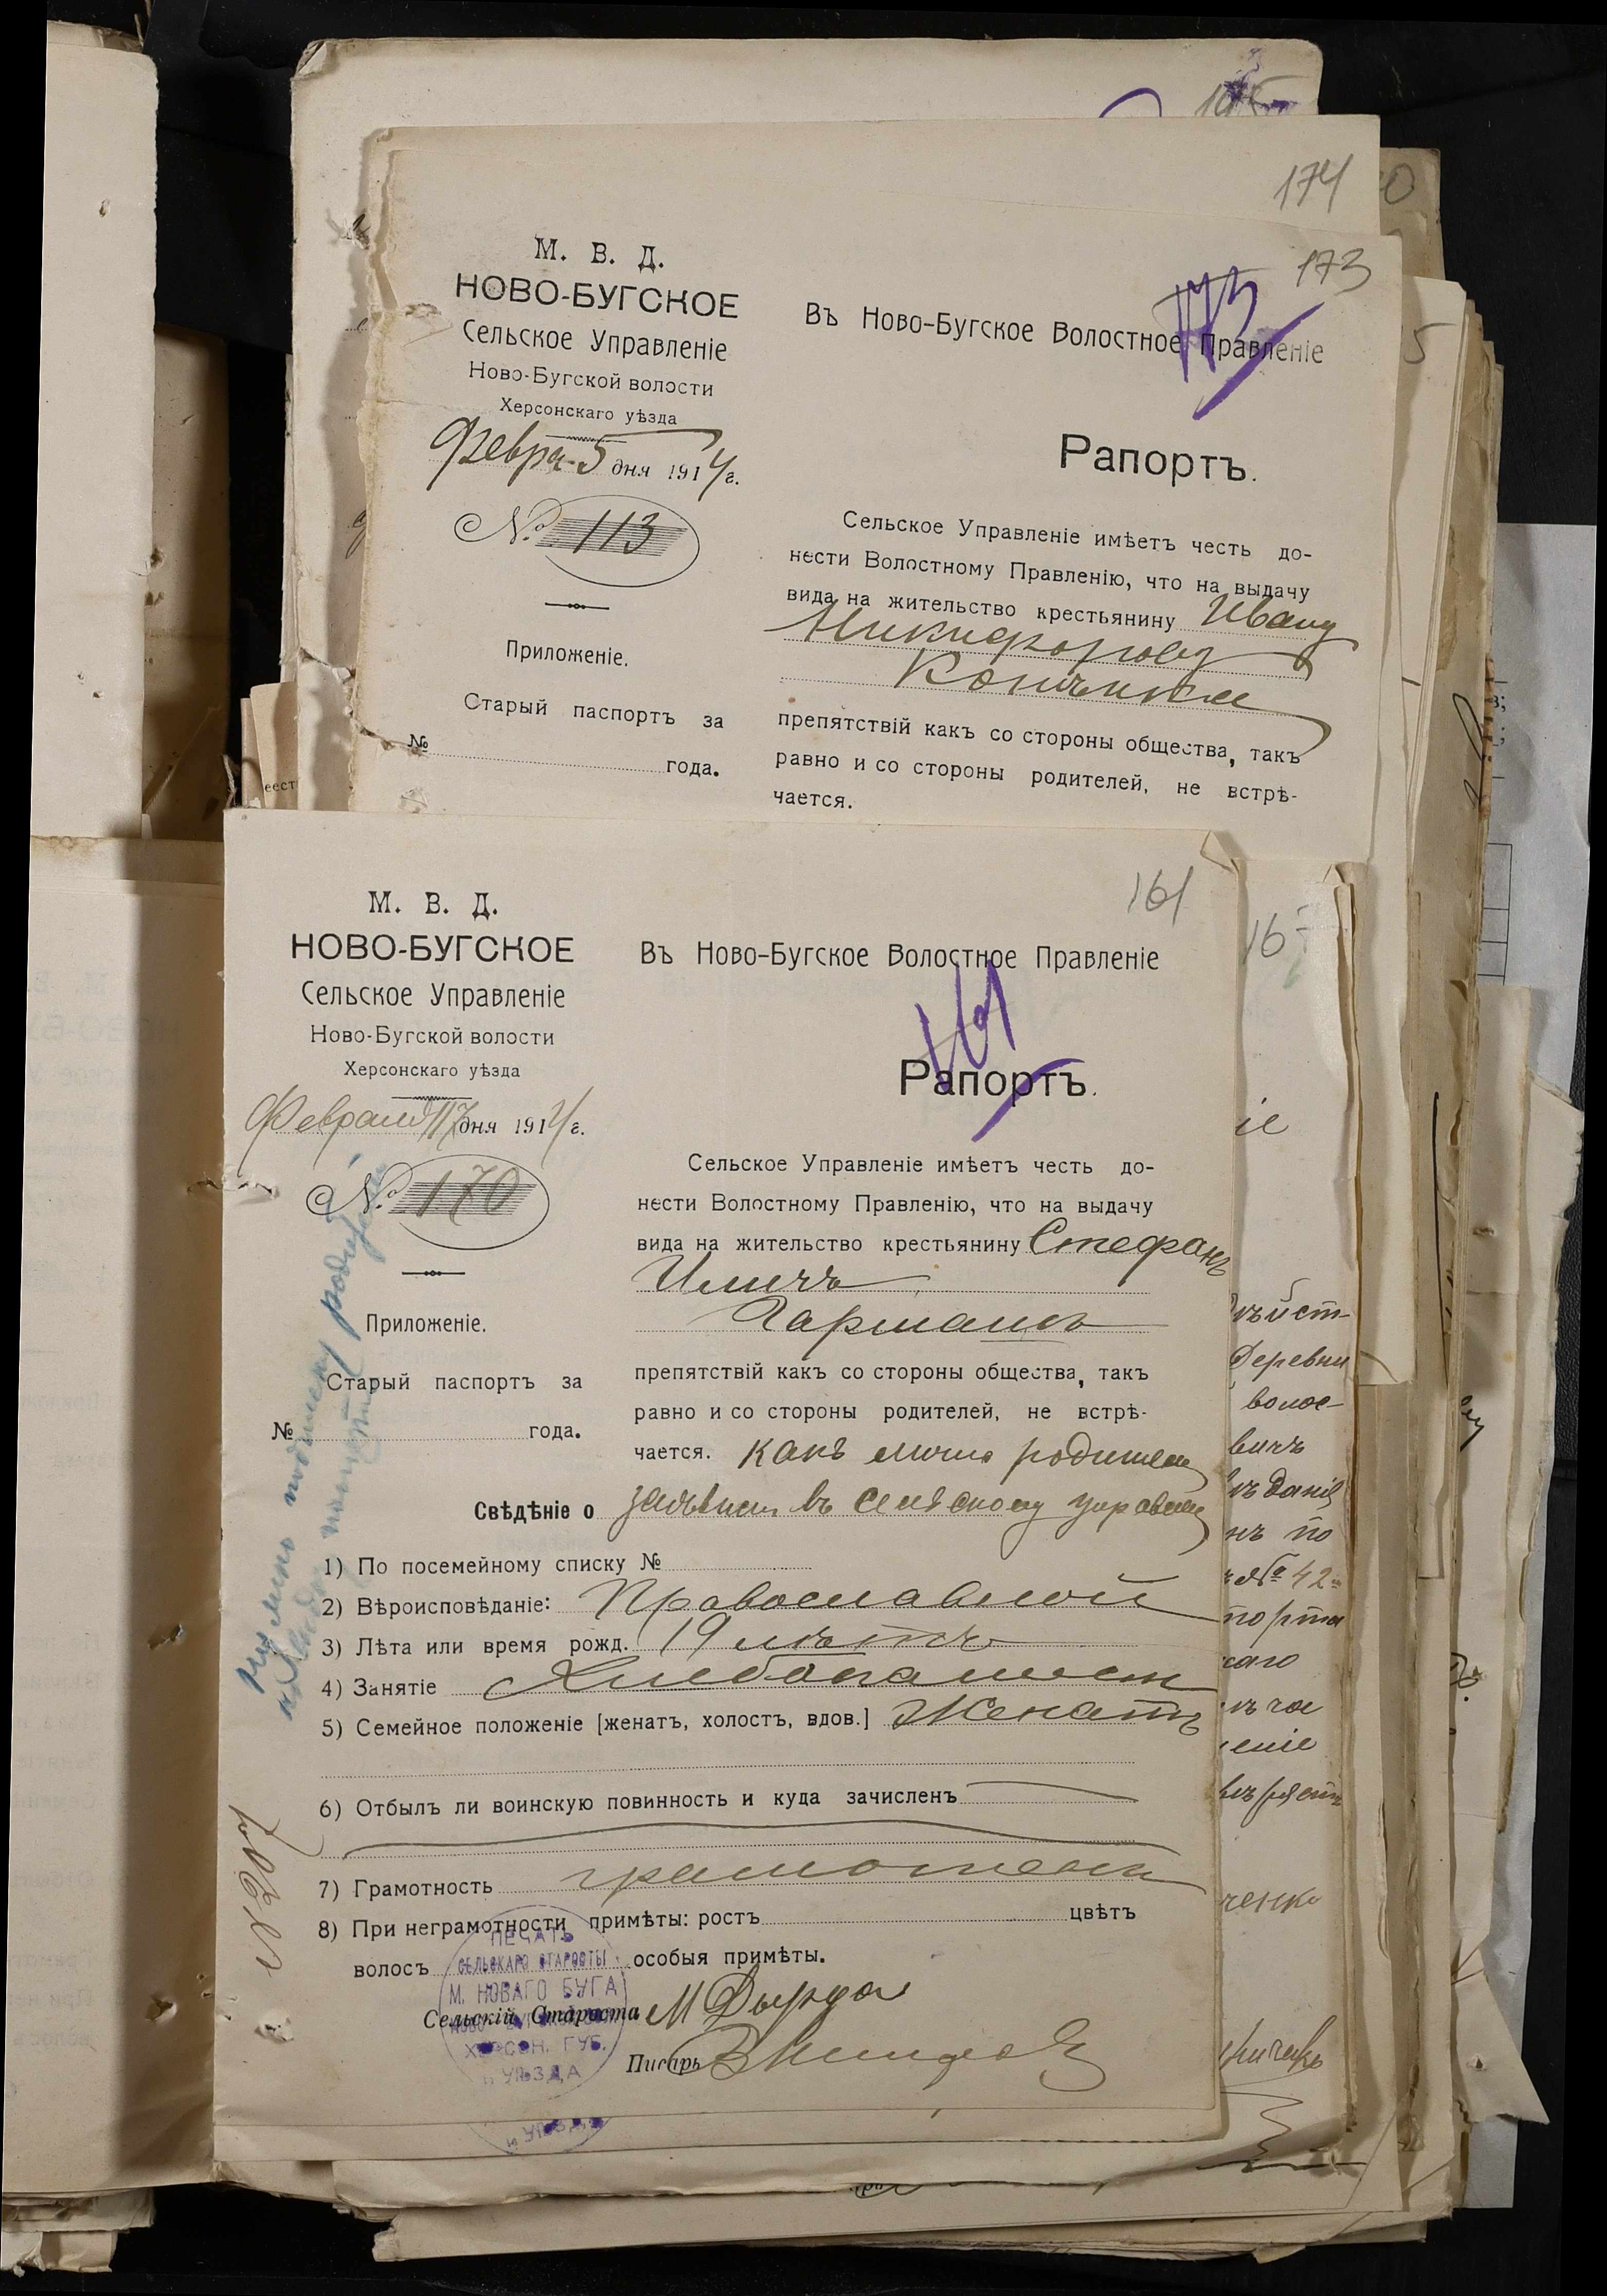 174
173
М. В. Д.
НОВО-БУГСКОЕ
Сельское Управленіе
Ново-Бугской волости
Херсонскаго уѣзда
Февра 5 дня 1914 г.
№ 113
Приложеніе.
Старый паспортъ за
№ года.
173
Въ Ново-Бугское Волостное Правленіе
Рапортъ.
Сельское Управленіе имѣетъ честь до-
нести Волостному Правленію, что на выдачу
вида на жительство крестьянину Ивану
Никифорову
препятствій какъ со стороны общества, такъ
равно и со стороны родителей, не встрѣ-
чается.
161
М. В. Д.
НОВО-БУГСКОЕ
Сельское Управленіе
Ново-Бугской волости
Херсонскаго уѣзда
Февраля 17 дня 1914 г.
№ 170
Приложеніе.
Старый паспортъ за
№ года.
Въ Ново-Бугское Волостное Правленіе
161
Рапортъ.
Сельское Управленіе имѣетъ честь до-
нести Волостному Правленію, что на выдачу
вида на жительство крестьянину Стефанъ
Иличъ
Гарманъ
препятствій какъ со стороны общества, такъ
равно и со стороны родителей, не встрѣ-
чается. какъ лично родители
Свѣдѣніе о заявили въ сельскому управлен
1) По посемейному списку №
2) Вѣроисповѣданіе: Православной
3) Лѣта или время рожд. 19 лѣтъ
4) Занятіе Хлебопашест
5) Семейное положеніе [женатъ, холостъ, вдов.] Женатъ
6) Отбылъ ли воинскую повинность и куда зачисленъ
7) Грамотность грамотенъ
8) При неграмотности примѣты: ростъ цвѣтъ
волосъ особыя примѣты.
Сельскій Староста М Дырда
Писарь
ПЕЧАТЬ
СЕЛЬСКАГО СТАРОСТЫ
М. НОВАГО БУГА
ХЕРСОН. ГУБ.
И УѢЗДА
16
іе
деревни
волос-
вичъ
нъ по
№ 42
порта
ченко